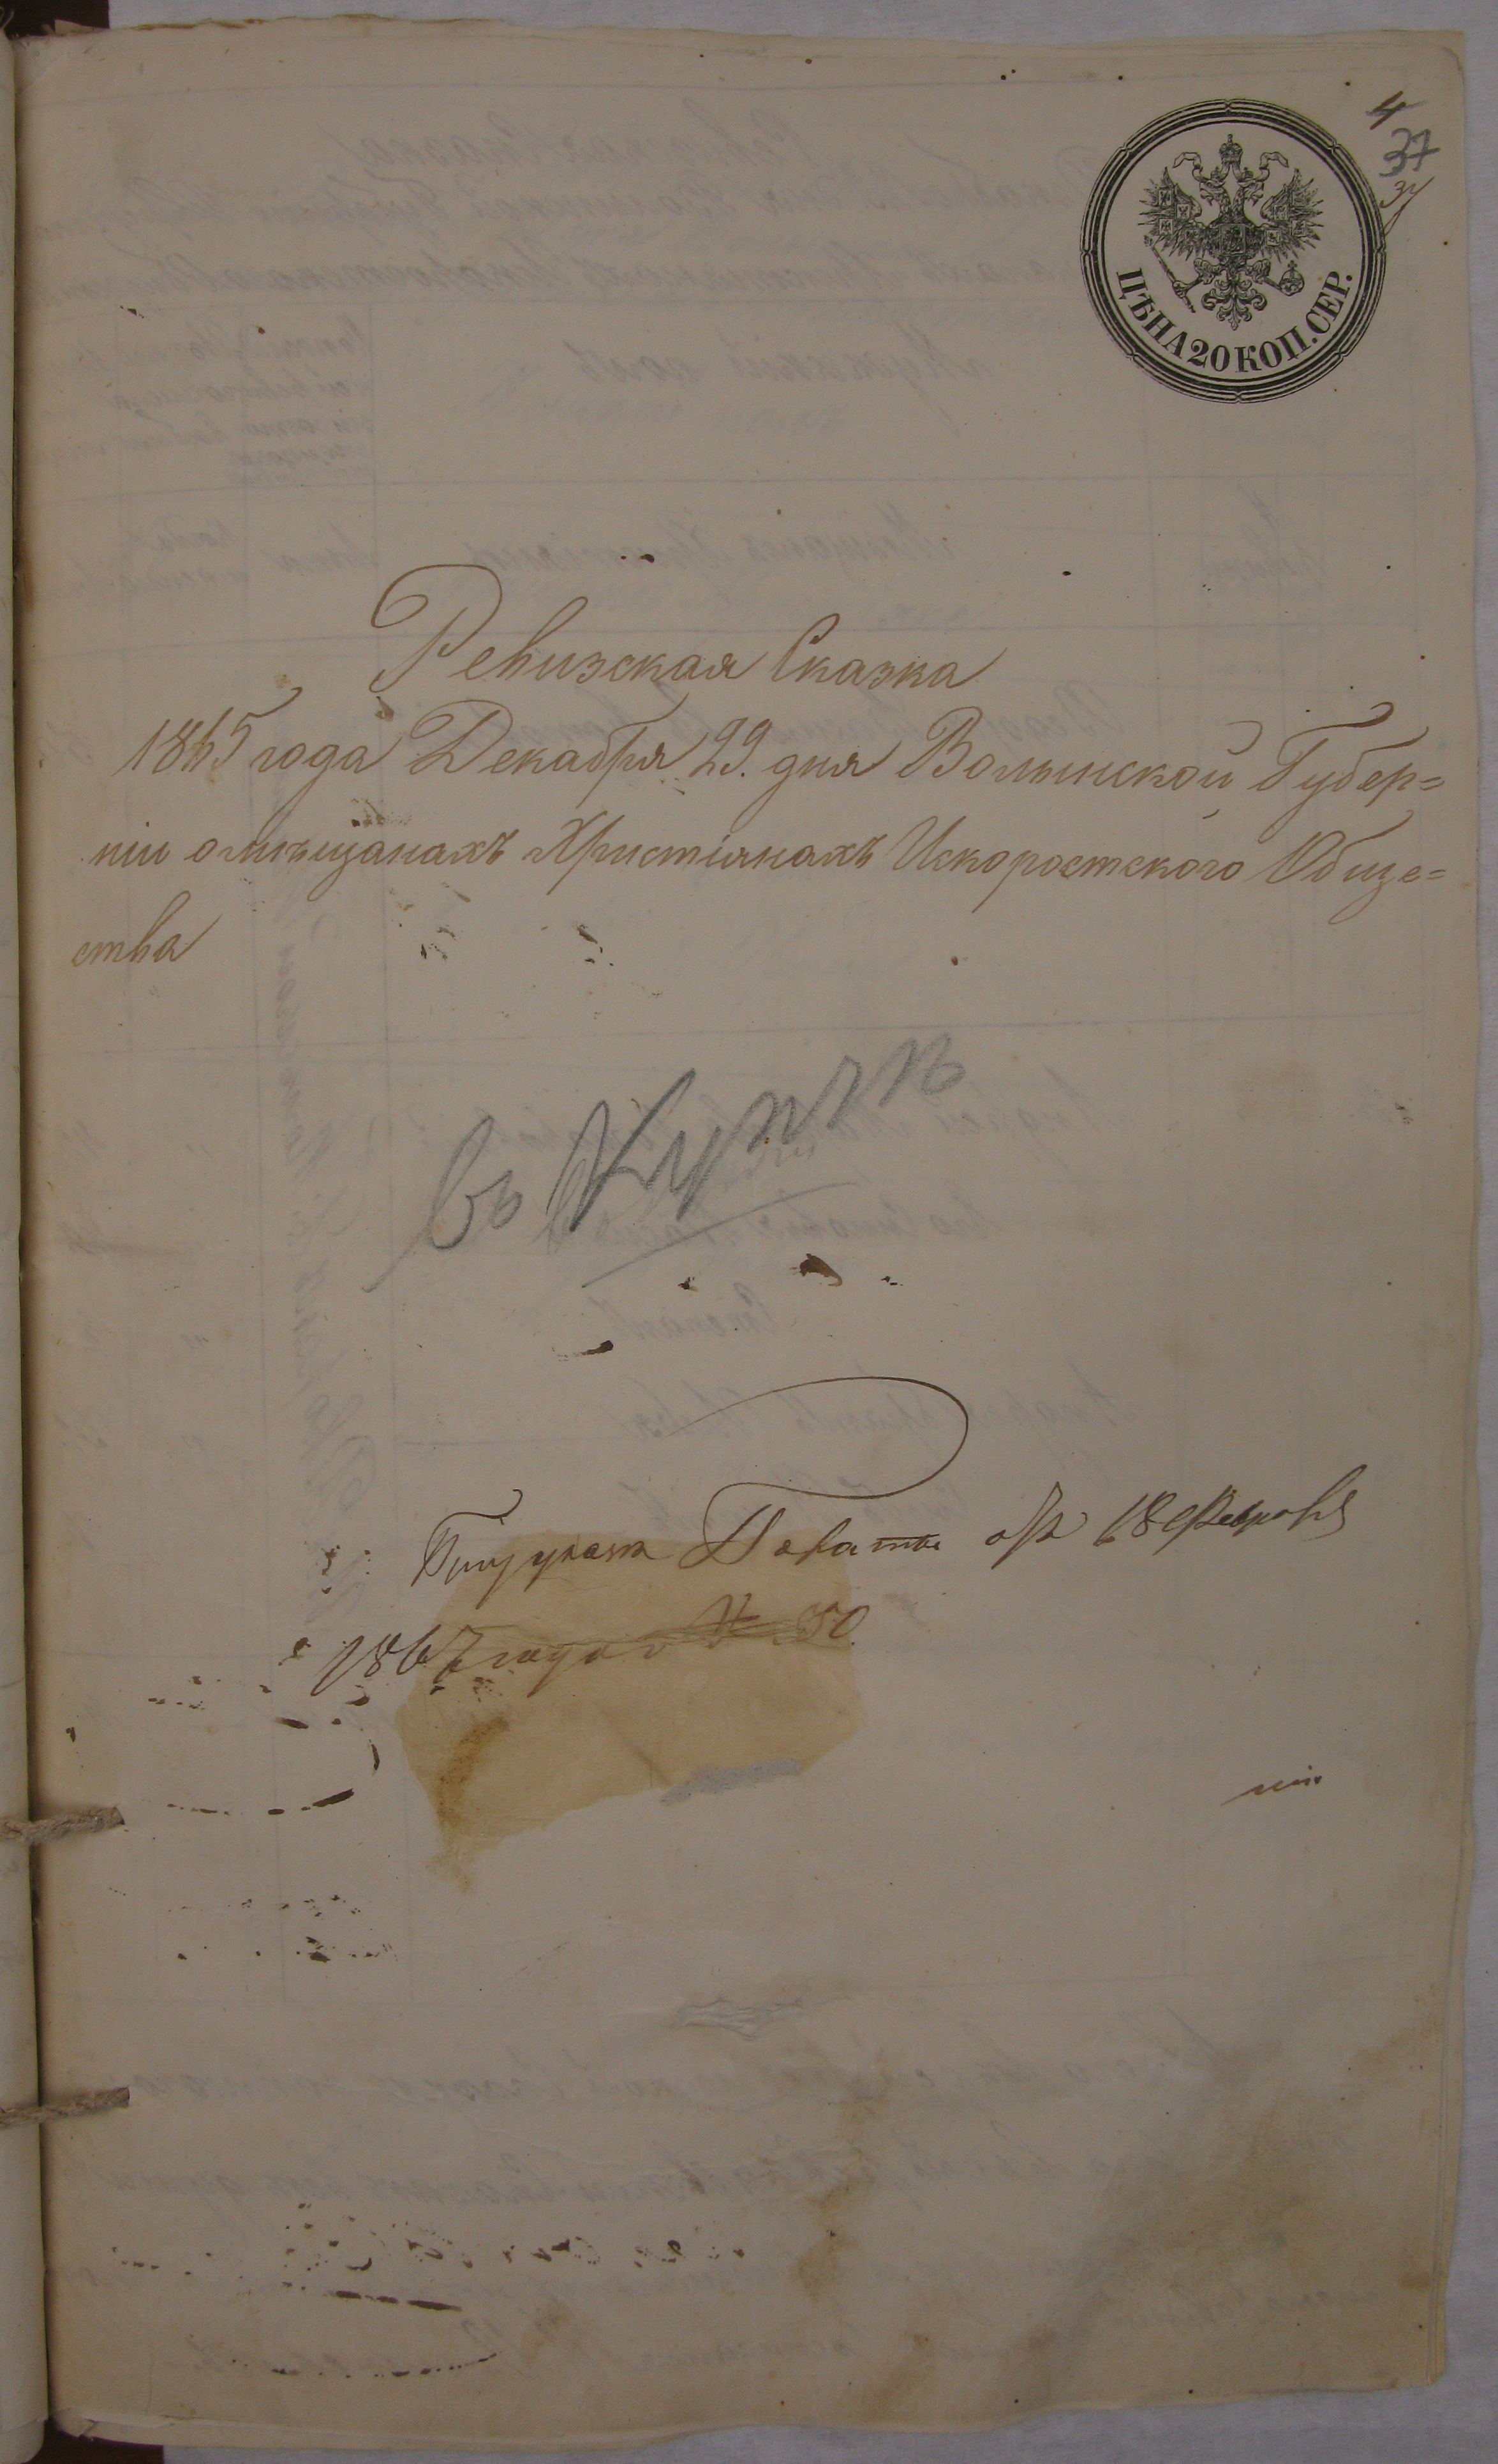 4
37
ЦѢНА 20 КОП. СЕР.
Ревизская Сказка
1865 года Декабря 29. дня Волынской Губер=
ніи о мѣщанахъ Христіянахъ Искоростского Обще=
ства
въ Купчъ
Палаты отъ 18 Февраля
1867 года № 50.